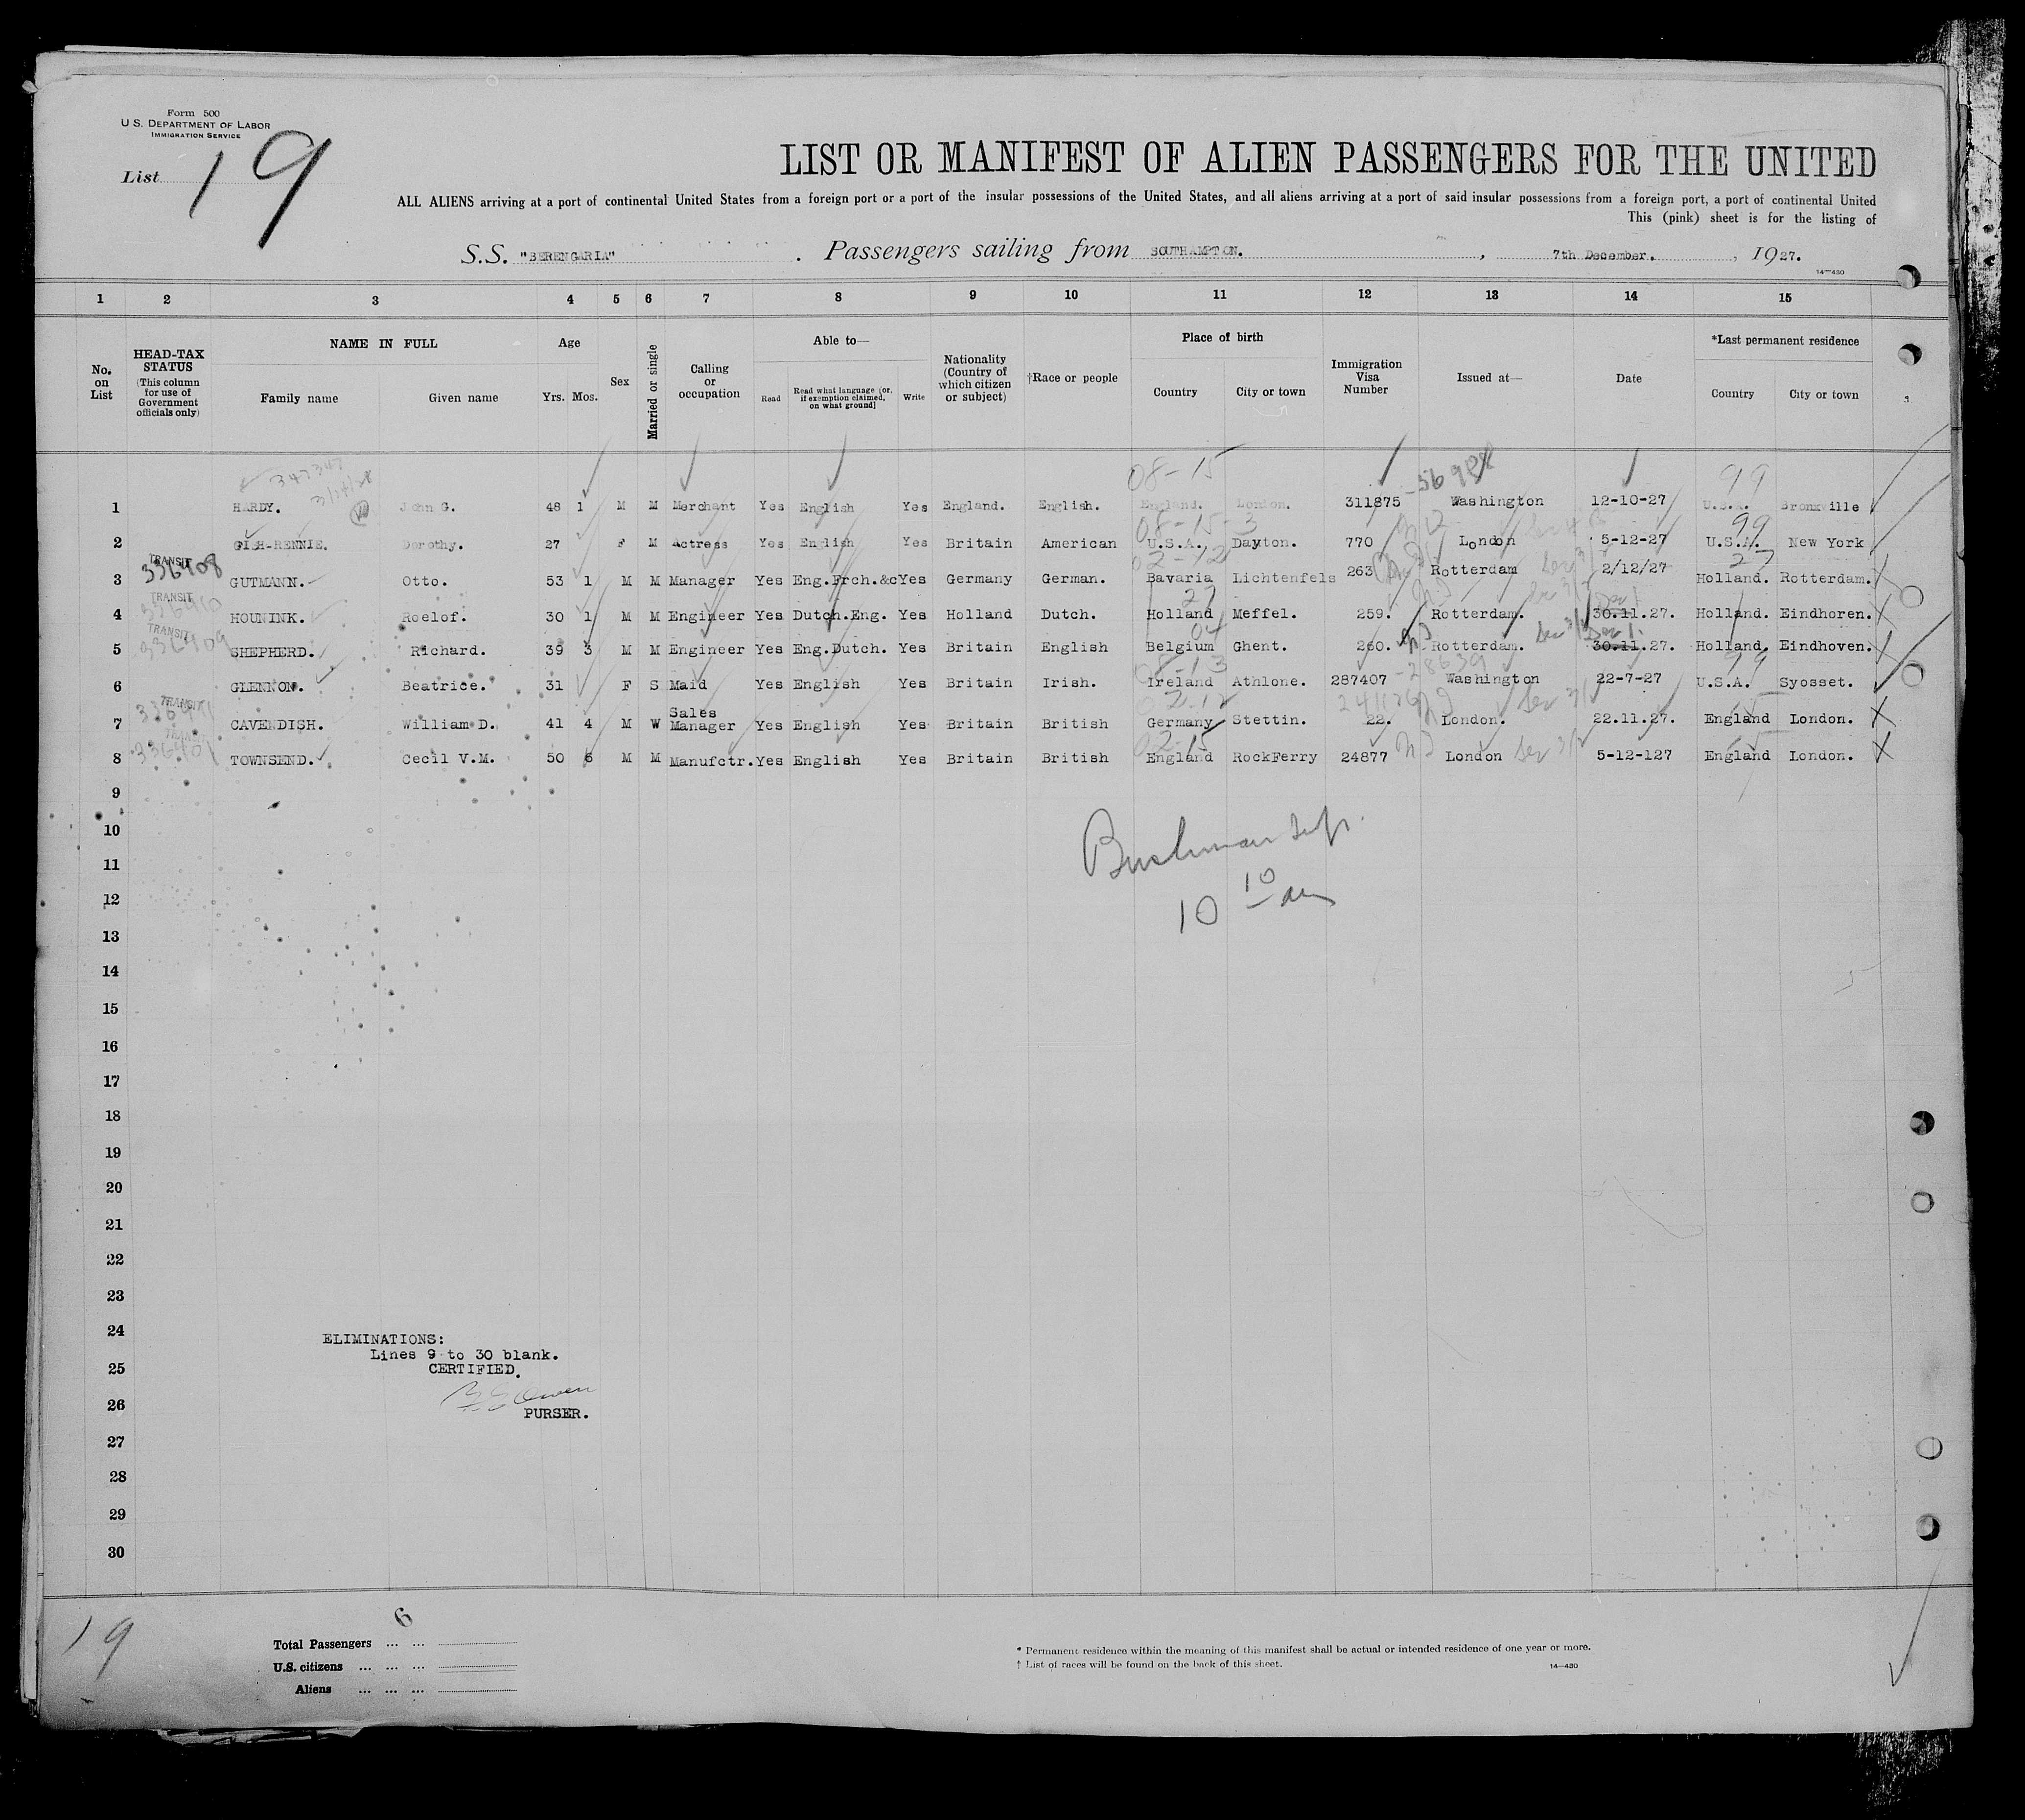 Form 500
U.S. DEPARTMENT OF LABOR
IMMIGRATION SERVICE
List 19
LIST OR MANIFEST OF ALIEN PASSENGERS FOR THE UNITED
ALL ALIENS arriving at a port of continental United States from a foreign port or a port of the insular possessions of the United States, and all aliens arriving at a port of said insular possessions from a foreign port, a port of continental United
This (pink) sheet is for the listing of
S.S. "BERENGARIA" . Passengers sailing from SOUTHAMPTON. , 7th December. , 1927.
14—430
1 2 3 4 5 6 7 8 9 10 11 12 13 14 15
No. on List
HEAD-TAX STATUS (This column for use of Government officials only)
NAME IN FULL
Family name Given name
Age
Yrs. Mos.
Sex
Married or single
Calling or occupation
Able to—
Read Read what language (or, if exemption claimed, on what ground) Write
Nationality (Country of which citizen or subject)
†Race or people
Place of birth
Country City or town
Immigration Visa Number
Issued at—
Date
*Last permanent residence
Country City or town
347347
08-15 99
1 HARDY. John G. 48 1 M M Merchant Yes English Yes England. English. England. London. 311875 Washington 12-10-27 U.S.A. Bronxville
08-15-3 99
2 GISH-RENNIE. Dorothy. 27 F M Actress Yes English Yes Britain American U.S.A. Dayton. 770 London 5-12-27 U.S.A. New York
TRANSIT 336408 02-12 27
3 GUTMANN. Otto. 53 1 M M Manager Yes Eng.Frch.&c Yes Germany German. Bavaria Lichtenfels 263 Rotterdam 2/12/27 Holland. Rotterdam.
TRANSIT 336410 27
4 HOUNINK. Roelof. 30 1 M M Engineer Yes Dutch.Eng. Yes Holland Dutch. Holland Meffel. 259. Rotterdam. 30.11.27. Holland. Eindhoren.
TRANSIT 336409 04
5 SHEPHERD. Richard. 39 3 M M Engineer Yes Eng.Dutch. Yes Britain English Belgium Ghent. 260. Rotterdam. 30.11.27. Holland. Eindhoven.
08-13 -28639 99
6 GLENNON. Beatrice. 31 F S Maid Yes English Yes Britain Irish. Ireland Athlone. 287407 Washington 22-7-27 U.S.A. Syosset.
TRANSIT
7 CAVENDISH. William D. 41 4 M W Sales Manager Yes English Yes Britain British Germany Stettin. 22. London. 22.11.27. England London.
336401 02-15
8 TOWNSEND. Cecil V.M. 50 6 M M Manufctr. Yes English Yes Britain British England RockFerry 24877 London 5-12-127 England London.
9
10
11
12
13
14
15
16
17
18
19
20
21
22
23
24
25
26
27
28
29
30
10 10 am
ELIMINATIONS:
Lines 9 to 30 blank.
CERTIFIED.
PURSER.
19
6
Total Passengers ... ...
U.S. citizens ... ... ...
Aliens ... ... ...
* Permanent residence within the meaning of this manifest shall be actual or intended residence of one year or more.
† List of races will be found on the back of this sheet.
14—430